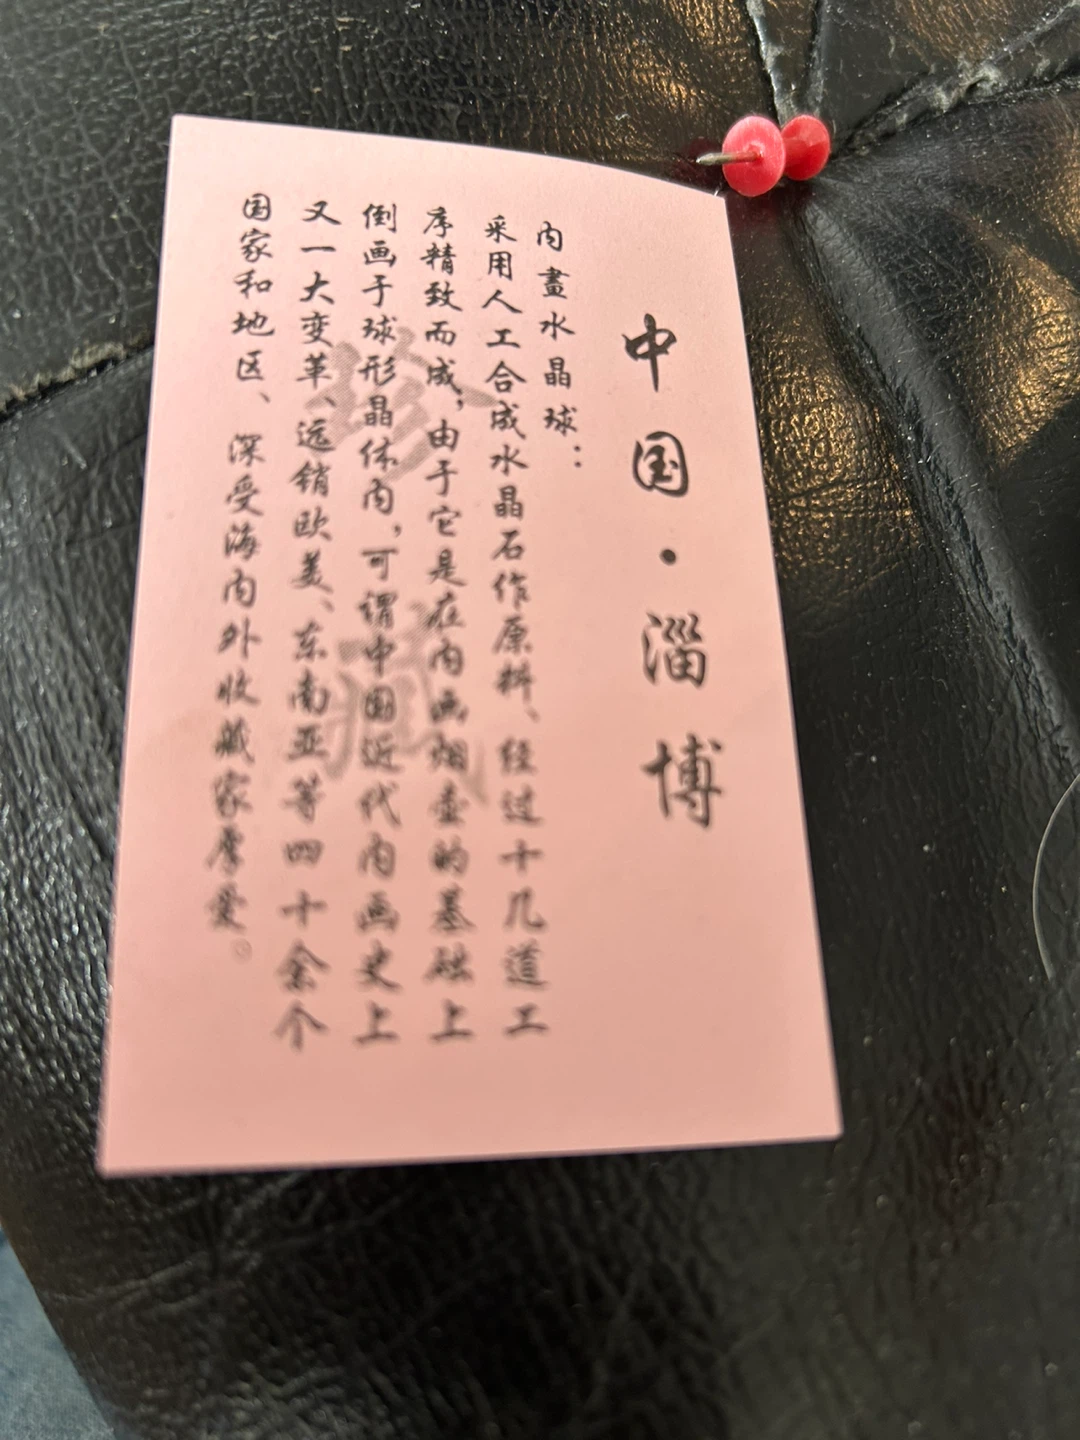 中国·淄博
内畫水晶球：
采用人工合成水晶石作原料、经过十几道工
序精致而成，由于它是在内画烟壶的基础上
倒画于球形晶体内，可谓中国近代内画史上
又一大变革、远销欧美、东南亚等四十余个
国家和地区、深受海内外收藏家厚爱。